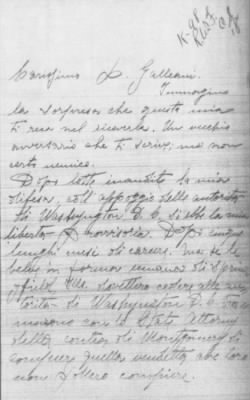 K-98
Carissimo L. Galleani.
Immagino
la sorpresa che questa mia
ti reca nel riceverla. Un vecchio
avversario che ti scrive, ma non
certo nemico.
Dopo lotte inaudite la mia
difesa, coll'appoggio delle autorità
di Washington D. C. si ebbe la mia
libertà provvisoria. Dopo cinque
lunghi mesi di carcere. Ma le
belve in forma umana di
field, Ills. dovettero cedere alle au-
torità di Washington D. C.
con lo State Attorney
della contea di Montgomery di
compiere quella vendetta che loro
non potero compiere.